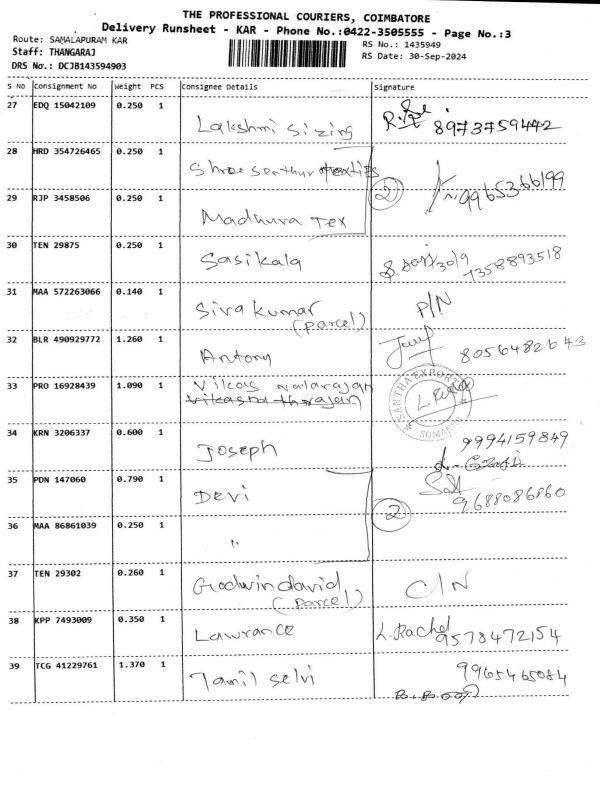 THE PROFESSIONAL COURIERS, COIMBATORE
Delivery Runsheet - KAR - Phone No.:0422-3505555 - Page No.:3
Route: SAMALAPURAM KAR
Staff: THANGARAJ
DRS No.: DCJB143594903
RS No.: 1435949
RS Date: 30-Sep-2024
S No Consignment No Weight PCS Consignee Details Signature
27 EDQ 15042109 0.250 1 Lakshmi Sizing 8973759442
28 HRD 354726465 0.250 1 Shree Senthur
29 RJP 3458506 0.250 1 Madhura Tex 2 9965366199
30 TEN 29875 0.250 1 Sasikala 30/9 7358893518
31 MAA 572263066 0.140 1 Sivakumar P/N
(Parcel)
32 BLR 490929772 1.260 1 Antony 8056482643
33 PRO 16928439 1.090 1 Vikas
SANTHA EXPORT
SOMANUR
34 KRN 3206337 0.600 1 Joseph 9994159849
35 PDN 147060 0.790 1 Devi 9688086860
36 MAA 86861039 0.250 1 " 2
37 TEN 29302 0.260 1 Godwin david C/N
(Parcel)
38 KPP 7493009 0.350 1 Lawrance L. Rachel 9578472154
39 TCG 41229761 1.370 1 Tamil Selvi 9965465084